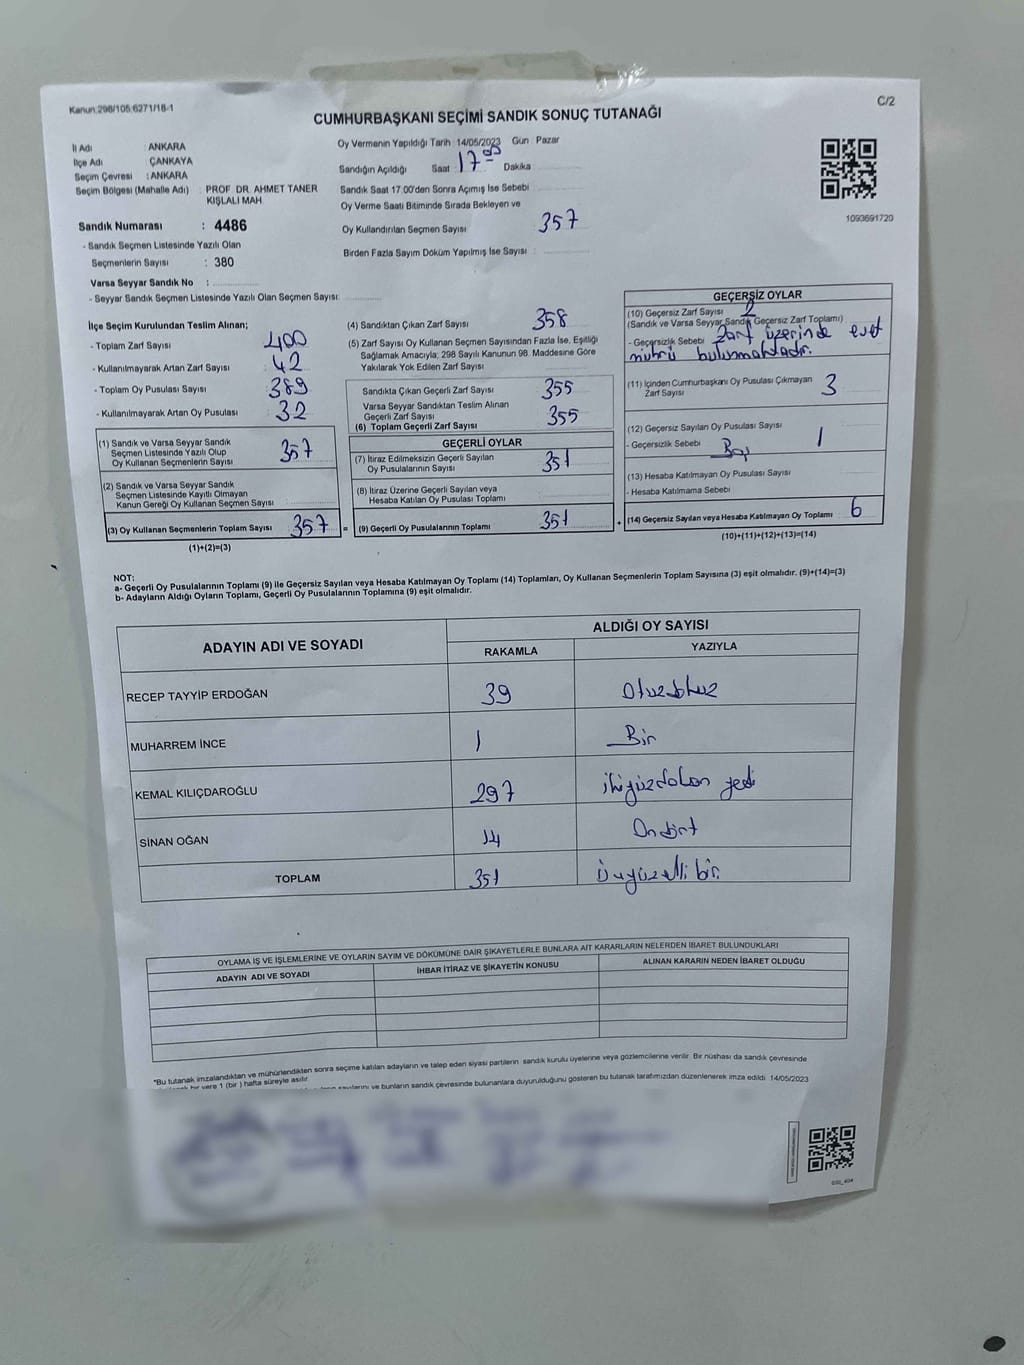 Kanun:298/105;6271/18-1
C/2
CUMHURBAŞKANI SEÇİMİ SANDIK SONUÇ TUTANAĞI
İl Adı : ANKARA
İlçe Adı : ÇANKAYA
Seçim Çevresi : ANKARA
Seçim Bölgesi (Mahalle Adı) : PROF. DR. AHMET TANER KIŞLALI MAH.
Sandık Numarası : 4486
- Sandık Seçmen Listesinde Yazılı Olan
Seçmenlerin Sayısı : 380
Varsa Seyyar Sandık No :
- Seyyar Sandık Seçmen Listesinde Yazılı Olan Seçmen Sayısı:
Oy Vermenin Yapıldığı Tarih 14/05/2023 Gün Pazar
Sandığın Açıldığı Saat 17 05 Dakika
Sandık Saat 17.00'den Sonra Açımış İse Sebebi
Oy Verme Saati Bitiminde Sırada Bekleyen ve
Oy Kullandırılan Seçmen Sayısı : 357
Birden Fazla Sayım Döküm Yapılmış İse Sayısı :
1093691720
İlçe Seçim Kurulundan Teslim Alınan;
- Toplam Zarf Sayısı 400
- Kullanılmayarak Artan Zarf Sayısı 42
- Toplam Oy Pusulası Sayısı 389
- Kullanılmayarak Artan Oy Pusulası 32
(1) Sandık ve Varsa Seyyar Sandık
Seçmen Listesinde Yazılı Olup
Oy Kullanan Seçmenlerin Sayısı 357
(2) Sandık ve Varsa Seyyar Sandık
Seçmen Listesinde Kayıtlı Olmayan
Kanun Gereği Oy Kullanan Seçmen Sayısı
(3) Oy Kullanan Seçmenlerin Toplam Sayısı 357
(1)+(2)=(3)
(4) Sandıktan Çıkan Zarf Sayısı 358
(5) Zarf Sayısı Oy Kullanan Seçmen Sayısından Fazla İse, Eşitliği
Sağlamak Amacıyla; 298 Sayılı Kanunun 98. Maddesine Göre
Yakılarak Yok Edilen Zarf Sayısı
Sandıkta Çıkan Geçerli Zarf Sayısı 355
Varsa Seyyar Sandıktan Teslim Alınan
Geçerli Zarf Sayısı
(6) Toplam Geçerli Zarf Sayısı 355
GEÇERLİ OYLAR
(7) İtiraz Edilmeksizin Geçerli Sayılan
Oy Pusulalarının Sayısı 351
(8) İtiraz Üzerine Geçerli Sayılan veya
Hesaba Katılan Oy Pusulası Toplamı
= (9) Geçerli Oy Pusulalarının Toplamı 351
GEÇERSİZ OYLAR
(10) Geçersiz Zarf Sayısı 2
(Sandık ve Varsa Seyyar Sandık Geçersiz Zarf Toplamı)
- Geçersizlik Sebebi Zarf üzerinde evet
mührü bulunmaktadır.
(11) İçinden Cumhurbaşkanı Oy Pusulası Çıkmayan
Zarf Sayısı 3
(12) Geçersiz Sayılan Oy Pusulası Sayısı 1
- Geçersizlik Sebebi Boş
(13) Hesaba Katılmayan Oy Pusulası Sayısı
- Hesaba Katılmama Sebebi
+ (14) Geçersiz Sayılan veya Hesaba Katılmayan Oy Toplamı 6
(10)+(11)+(12)+(13)=(14)
NOT:
a- Geçerli Oy Pusulalarının Toplamı (9) ile Geçersiz Sayılan veya Hesaba Katılmayan Oy Toplamı (14) Toplamları, Oy Kullanan Seçmenlerin Toplam Sayısına (3) eşit olmalıdır. (9)+(14)=(3)
b- Adayların Aldığı Oyların Toplamı, Geçerli Oy Pusulalarının Toplamına (9) eşit olmalıdır.
ADAYIN ADI VE SOYADI
ALDIĞI OY SAYISI
RAKAMLA YAZIYLA
RECEP TAYYİP ERDOĞAN 39 Otuzdokuz
MUHARREM İNCE 1 Bir
KEMAL KILIÇDAROĞLU 297 ikiyüzdoksan yedi
SİNAN OĞAN 14 Ondört
TOPLAM 351 Üçyüzelli bir
OYLAMA İŞ VE İŞLEMLERİNE VE OYLARIN SAYIM VE DÖKÜMÜNE DAİR ŞİKAYETLERLE BUNLARA AİT KARARLARIN NELERDEN İBARET BULUNDUKLARI
ADAYIN ADI VE SOYADI İHBAR İTİRAZ VE ŞİKAYETİN KONUSU ALINAN KARARIN NEDEN İBARET OLDUĞU
*Bu tutanak imzalandıktan ve mühürlendikten sonra seçime katılan adayların ve talep eden siyasi partilerin sandık kurulu üyelerine veya gözlemcilerine verilir. Bir nüshası da sandık çevresinde
bir yere 1 (bir ) hafta süreyle asılır.
ve bunların sandık çevresinde bulunanlara duyurulduğunu gösteren bu tutanak tarafımızdan düzenlenerek imza edildi. 14/05/2023